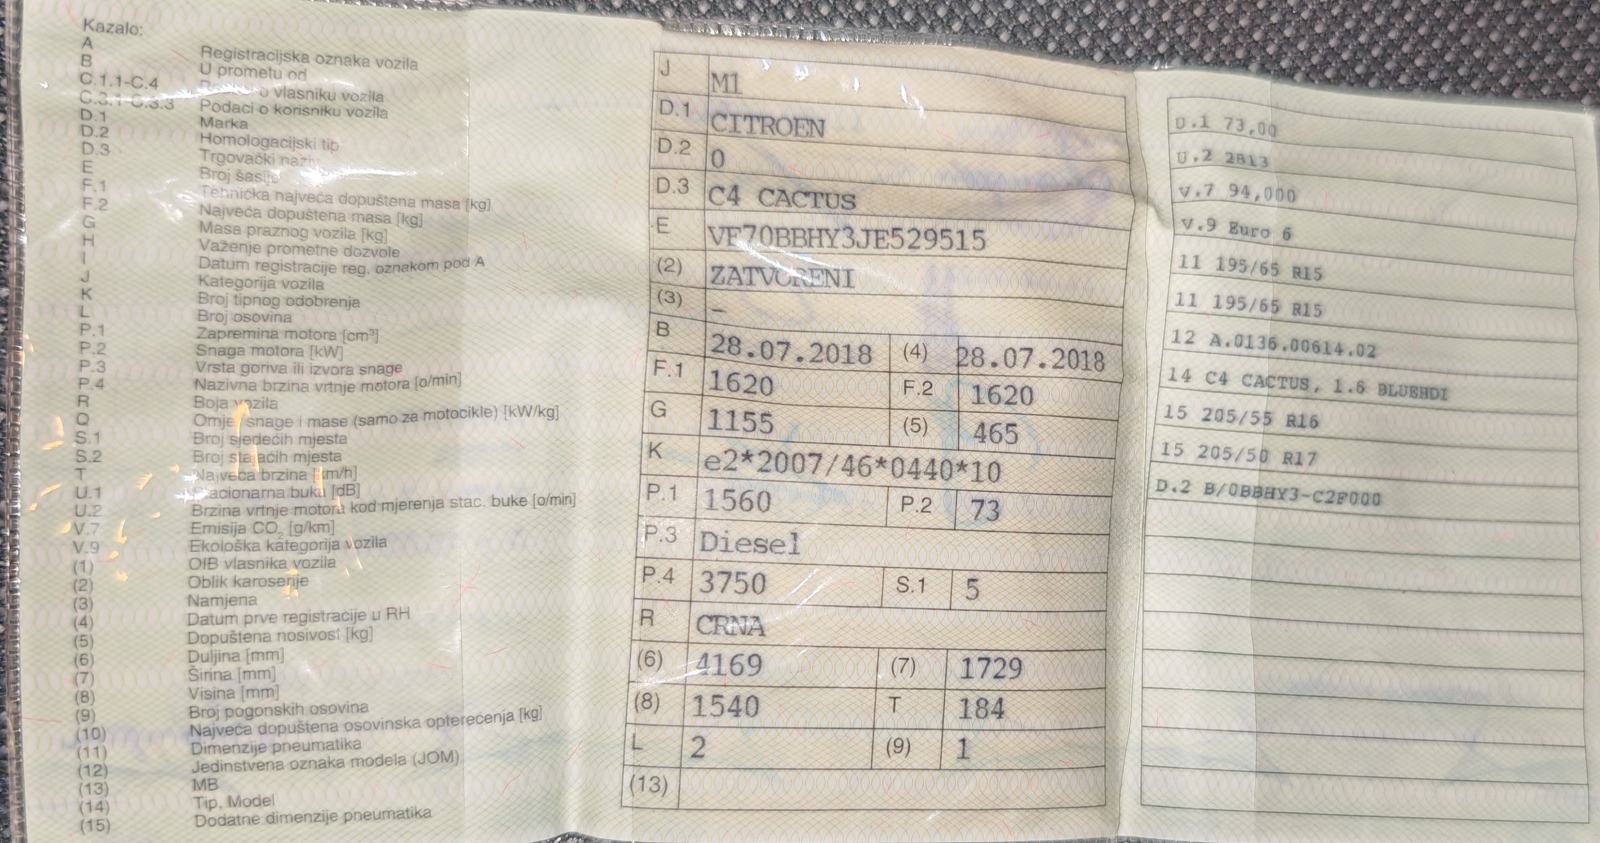 Kazalo:
A Registracijska oznaka vozila
B U prometu od
C.1.1-C.4 vlasniku vozila
C.3.1-C.3.3 Podaci o korisniku vozila
D.1 Marka
D.2 Homologacijski tip
D.3 Trgovački naziv
E Broj šasije
F.1 Tehnička najveća dopuštena masa [kg]
F.2 Najveća dopuštena masa [kg]
G Masa praznog vozila [kg]
H Važenje prometne dozvole
I Datum registracije reg. oznakom pod A
J Kategorija vozila
K Broj tipnog odobrenja
L Broj osovina
P.1 Zapremina motora [cm³]
P.2 Snaga motora [kW]
P.3 Vrsta goriva ili izvora snage
P.4 Nazivna brzina vrtnje motora [o/min]
R Boja vozila
Q Omjer snage i mase (samo za motocikle) [kW/kg]
S.1 Broj sjedećih mjesta
S.2 Broj stajaćih mjesta
T Najveća brzina [km/h]
U.1 Stacionarna buka [dB]
U.2 Brzina vrtnje motora kod mjerenja stac. buke [o/min]
V.7 Emisija CO₂ [g/km]
V.9 Ekološka kategorija vozila
(1) OIB vlasnika vozila
(2) Oblik karoserije
(3) Namjena
(4) Datum prve registracije u RH
(5) Dopuštena nosivost [kg]
(6) Duljina [mm]
(7) Širina [mm]
(8) Visina [mm]
(9) Broj pogonskih osovina
(10) Najveća dopuštena osovinska opterećenja [kg]
(11) Dimenzije pneumatika
(12) Jedinstvena oznaka modela (JOM)
(13) MB
(14) Tip, Model
(15) Dodatne dimenzije pneumatika
J M1
D.1 CITROEN
D.2 0
D.3 C4 CACTUS
E VF70BBHY3JE529515
(2) ZATVORENI
(3) –
B 28.07.2018 (4) 28.07.2018
F.1 1620 F.2 1620
G 1155 (5) 465
K e2*2007/46*0440*10
P.1 1560 P.2 73
P.3 Diesel
P.4 3750 S.1 5
R CRNA
(6) 4169 (7) 1729
(8) 1540 T 184
L 2 (9) 1
(13)
U.1 73,00
U.2 2813
V.7 94,000
V.9 Euro 6
11 195/65 R15
11 195/65 R15
12 A.0136.00614.02
14 C4 CACTUS, 1.6 BLUEHDI
15 205/55 R16
15 205/50 R17
D.2 B/0BBHY3-C2F000